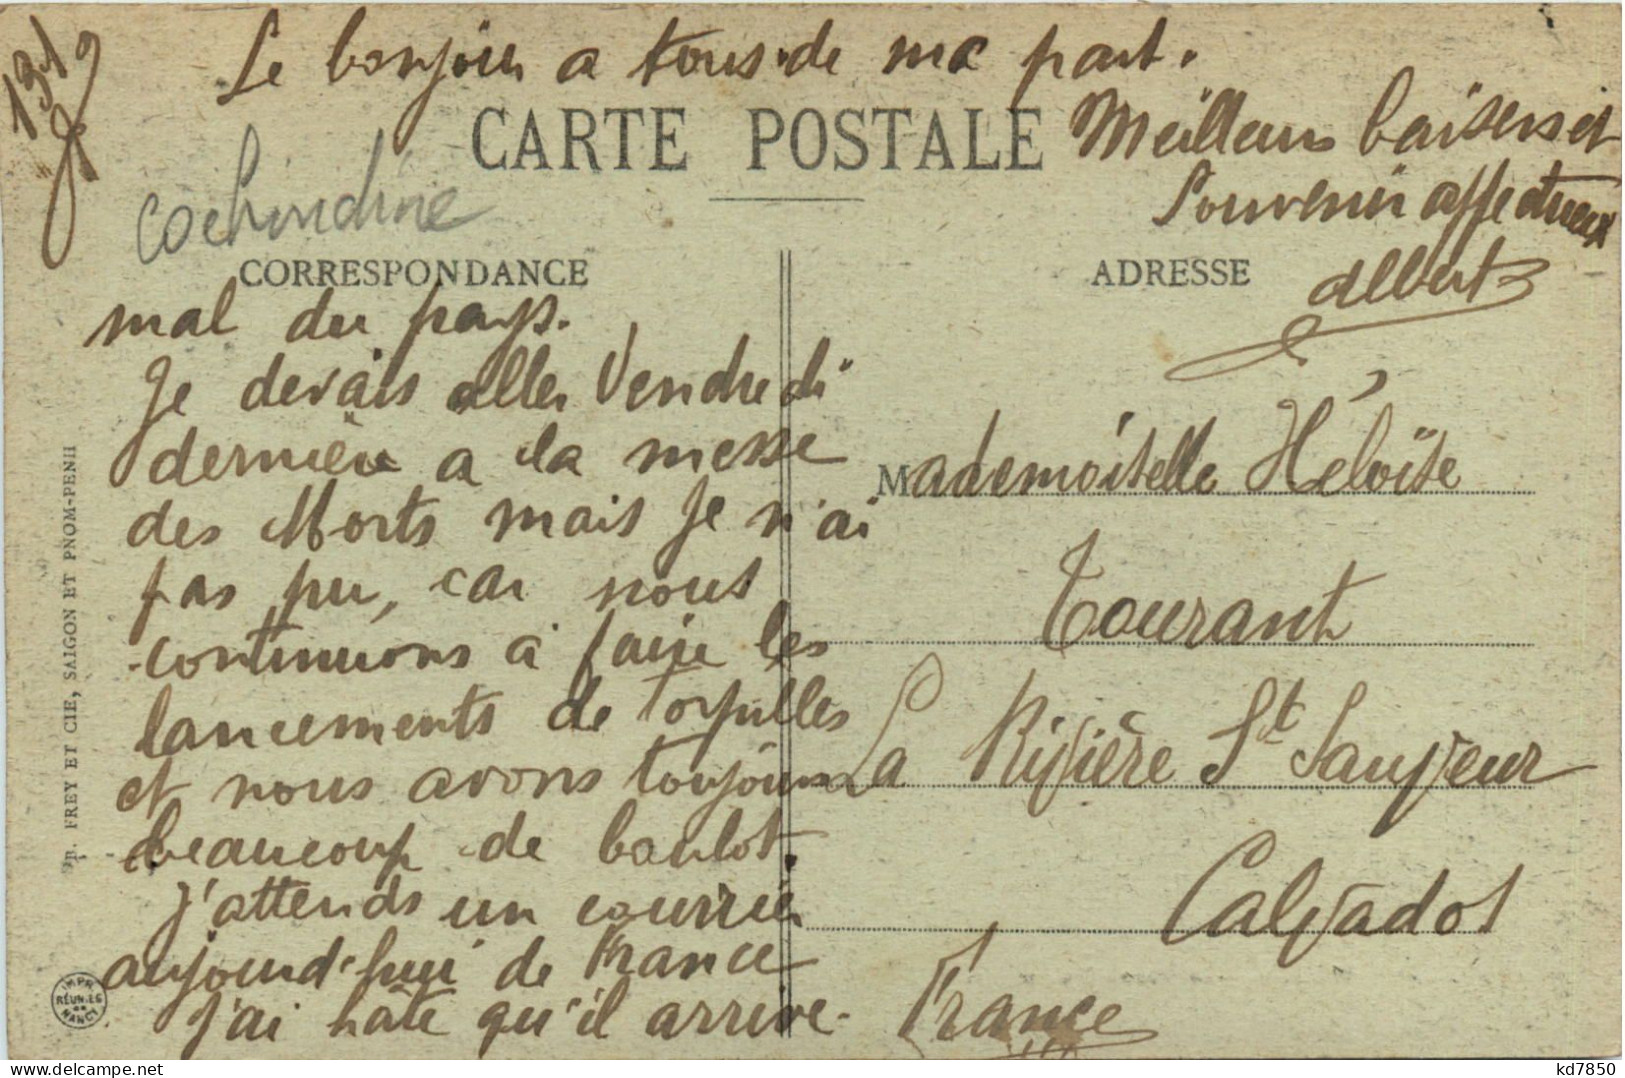 Le bonjour a tous de ma part.
Meilleurs baisers et
Souvenir affectueux
Albert
CARTE POSTALE
Cochindine
CORRESPONDANCE
ADRESSE
mal du pays.
Je devais aller Vendredi
dernier a la messe
des Morts mais Je n'ai
pas pu, car nous
continuons à faire les
lancements de Torpilles
et nous avons toujours
beaucoup de boulot.
J'attends un courrier
aujourd'hui de France
J'ai hâte qu'il arrive.
Mademoiselle Héloïse
Tourant
La Rivière St Sauveur
Calvados
France
FREY ET CIE, SAIGON ET PNOM-PENH
IMPR.
RÉUNIES
NANCY
kd7850